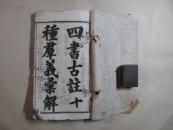 四書古註十
種羣義彙解